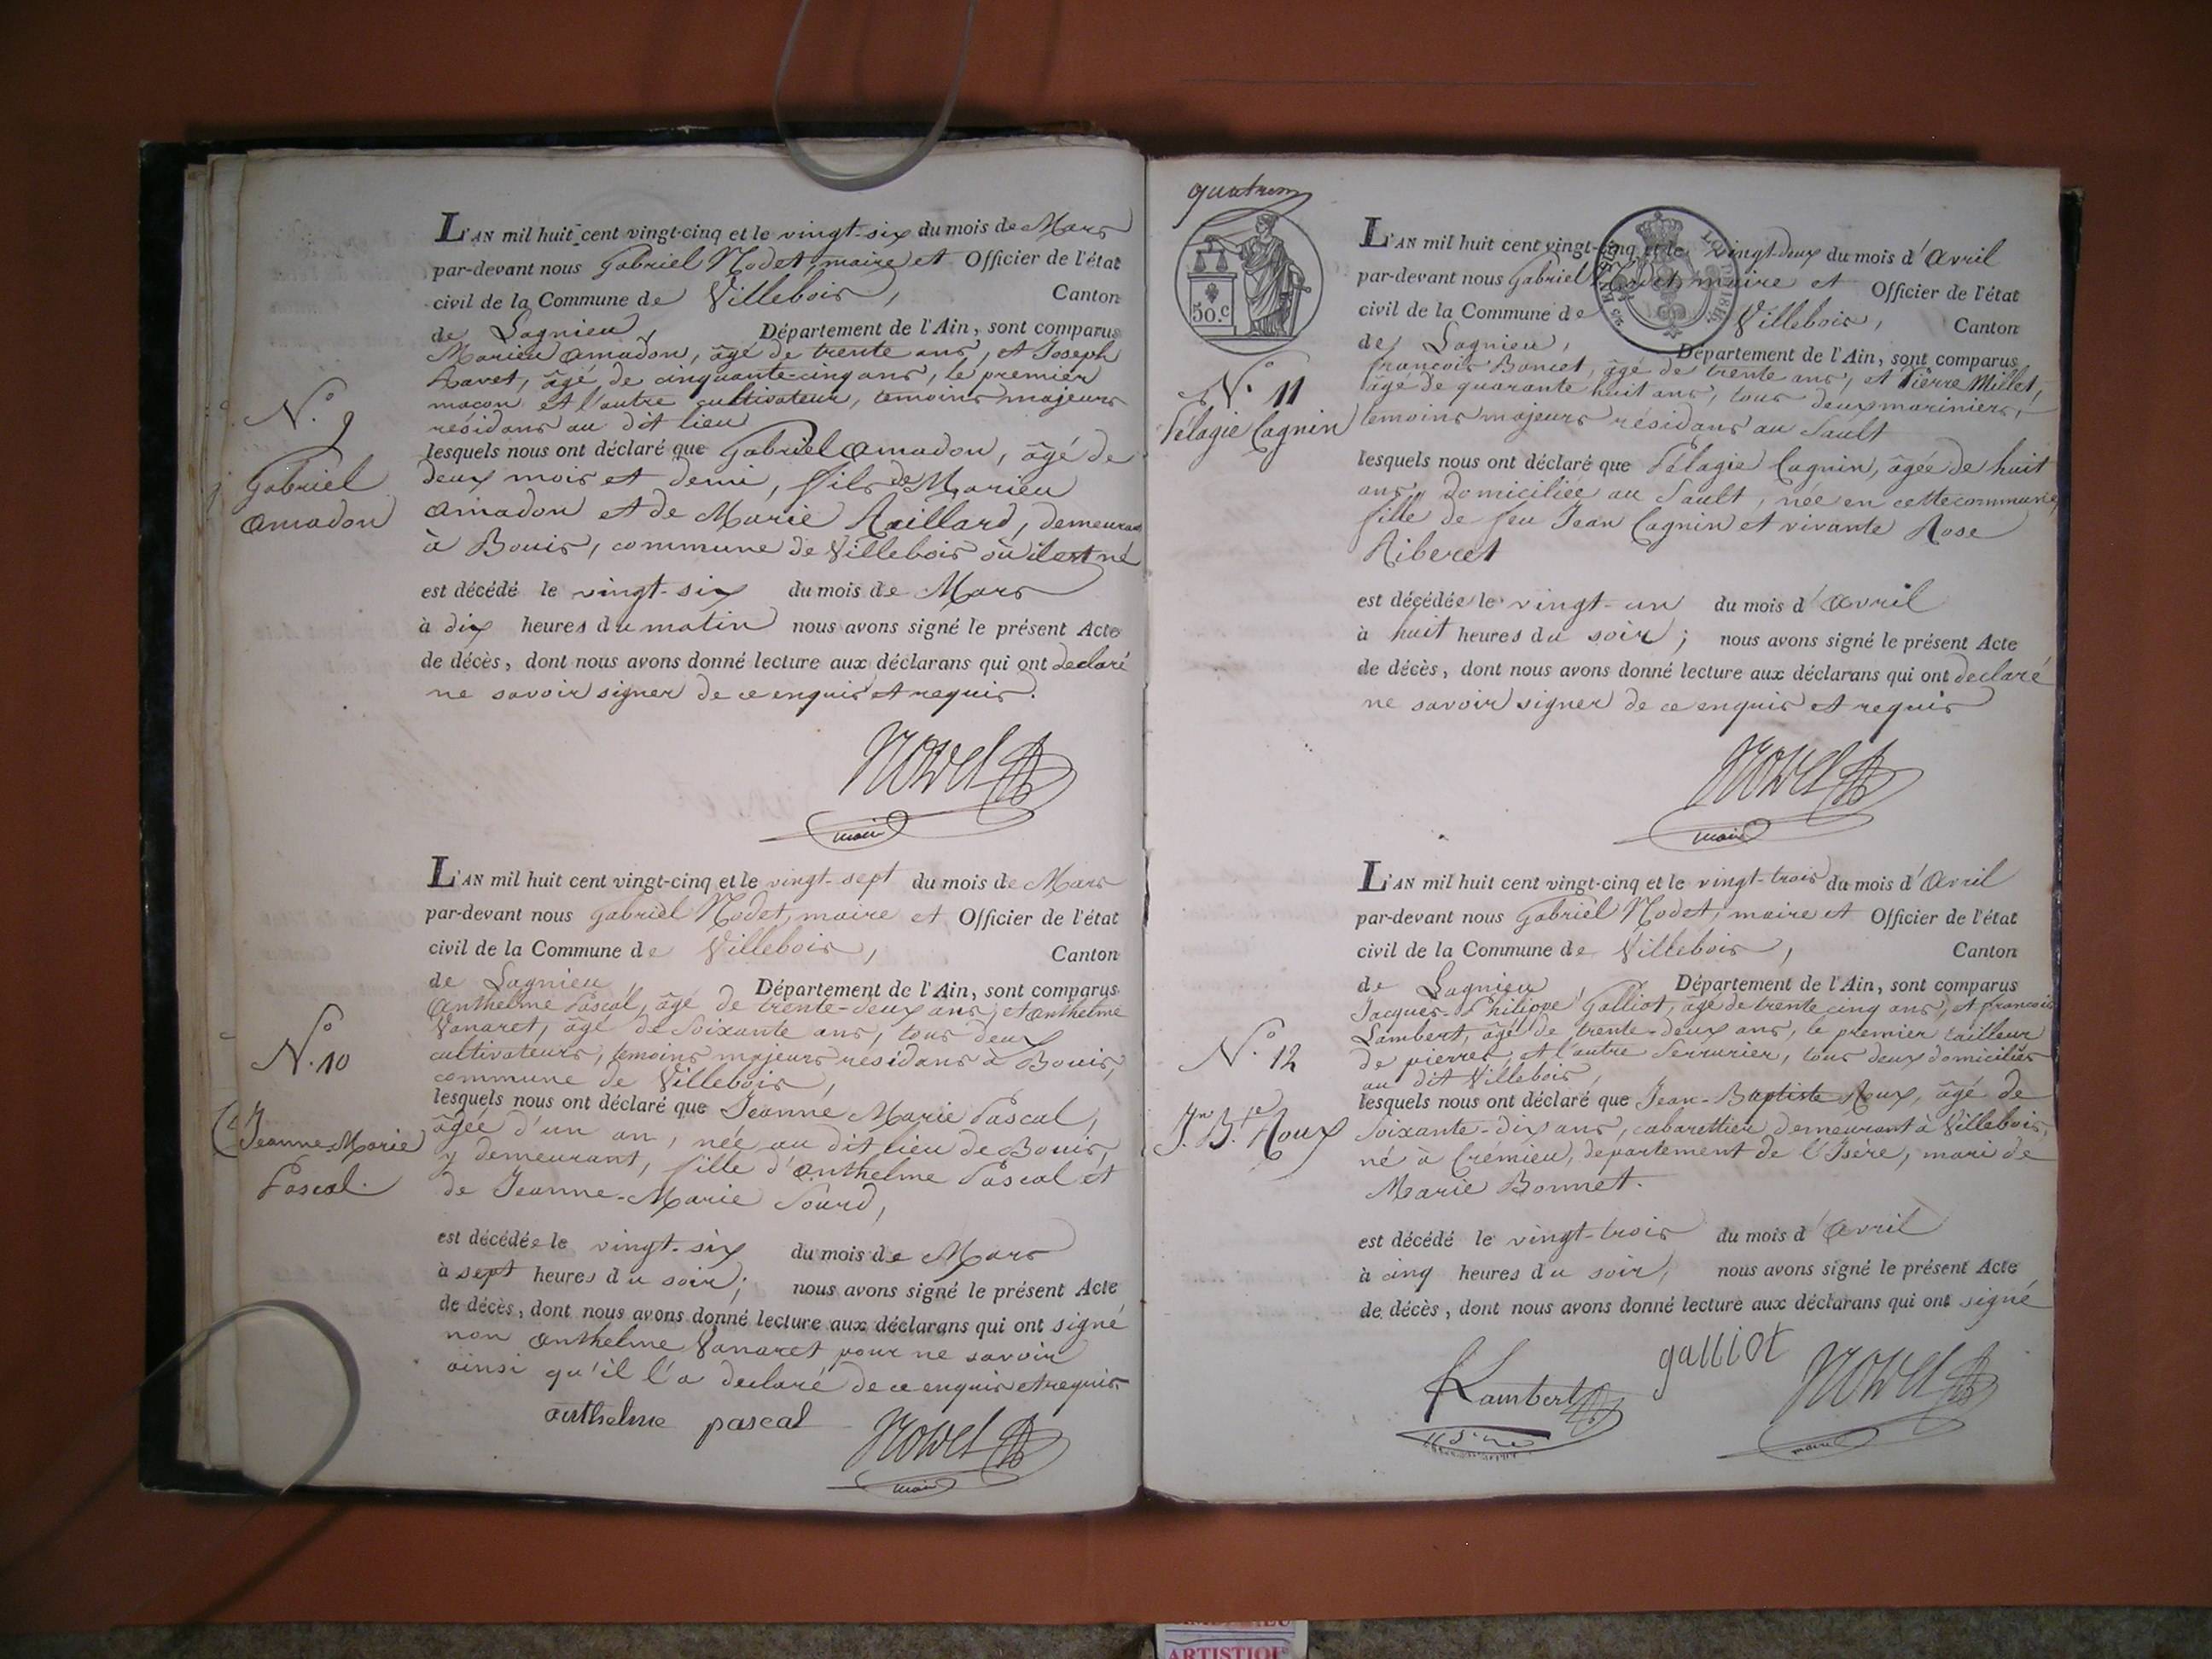 L'AN mil huit cent vingt-cinq et le vingt-six du mois de Mars
par-devant nous Gabriel Nodet, maire et Officier de l'état
civil de la Commune de Villebois, Canton
de Lagnieu, Département de l'Ain, sont comparus
Marieu Amadon, âgé de trente ans, et Joseph
Ravet, âgé de cinquante-cinq ans, le premier
maçon et l'autre cultivateur, temoins majeurs
résidans au dit lieu
N.o 9
Gabriel
Amadon
lesquels nous ont déclaré que Gabriel Amadon, âgé de
deux mois et demi, fils de Marieu
Amadon et de Marie Raillard, demeurant
à Bouis, commune de Villebois où il est né
est décédé le vingt-six du mois de Mars
à dix heures du matin nous avons signé le présent Acte
de décès, dont nous avons donné lecture aux déclarans qui ont declaré
ne savoir signer de ce enquis et requis.
Nodet
maire
L'AN mil huit cent vingt-cinq et le vingt-sept du mois de Mars
par-devant nous Gabriel Nodet, maire et Officier de l'état
civil de la Commune de Villebois, Canton
de Lagnieu, Département de l'Ain, sont comparus
Anthelme Pascal, âgé de trente-deux ans, et Anthelme
Vanaret, âgé de soixante ans, tous deux
cultivateurs, temoins majeurs residans à Bouis,
commune de Villebois,
N.o 10
Jeanne Marie
Pascal.
lesquels nous ont déclaré que Jeanne Marie Pascal,
âgée d'un an, née au dit lieu de Bouis,
y demeurant, fille d'Anthelme Pascal et
de Jeanne-Marie Sourd,
est décédée le vingt-six du mois de Mars
à sept heures du soir; nous avons signé le présent Acte
de décès, dont nous avons donné lecture aux déclarans qui ont signé
non Anthelme Vanaret pour ne savoir
ainsi qu'il l'a declaré de ce enquis et requis
anthelme pascal Nodet
maire
50.c
L'AN mil huit cent vingt-cinq et le vingt-deux du mois d'Avril
par-devant nous Gabriel Nodet, maire et Officier de l'état
civil de la Commune de Villebois, Canton
de Lagnieu, Département de l'Ain, sont comparus
francois Boncet, âgé de trente ans, et Pierre Millet,
âgé de quarante huit ans, tous deux mariniers,
temoins majeurs résidans au Sault
N.o 11
Pélagie Cagnin
lesquels nous ont déclaré que Pélagie Cagnin, âgée de huit
ans, domiciliée au Sault, née en cette commune,
fille de feu Jean Cagnin et vivante Rose
Riberet
est décédée le vingt-un du mois d'Avril
à huit heures du soir; nous avons signé le présent Acte
de décès, dont nous avons donné lecture aux déclarans qui ont declaré
ne savoir signer de ce enquis et requis
Nodet
maire
L'AN mil huit cent vingt-cinq et le vingt-trois du mois d'Avril
par-devant nous Gabriel Nodet, maire et Officier de l'état
civil de la Commune de Villebois, Canton
de Lagnieu, Département de l'Ain, sont comparus
Jacques-Philippe Galliot, âgé de trente cinq ans, et francois
Lambert, âgé de trente-deux ans, le premier tailleur
de pierres et l'autre Serrurier, tous deux domiciliés
au dit Villebois,
N.o 12
J.n B.te Roux
lesquels nous ont déclaré que Jean-Baptiste Roux, âgé de
soixante-dix ans, cabarettier demeurant à Villebois,
né à Crémieu, departement de l'Isère, mari de
Marie Bonnet.
est décédé le vingt-trois du mois d'Avril
à cinq heures du soir, nous avons signé le présent Acte
de décès, dont nous avons donné lecture aux déclarans qui ont signé
Lambert galliot Nodet
maire